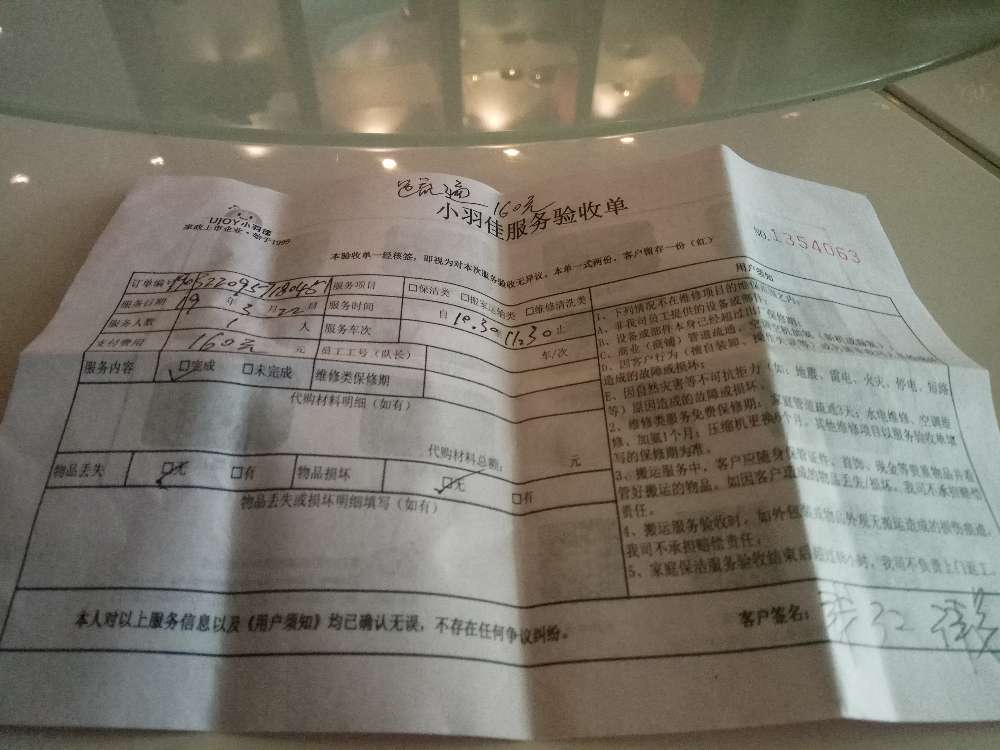 160元
UJOY小羽佳
家政上市企业·始于1999
小羽佳服务验收单
NO.1354063
本验收单一经核签，即视为对本次服务验收无异议。本单一式两份，客户留存一份（红）
订单编号 服务项目 □保洁类 □搬家运输类 □维修清洗类
服务日期 19 年 3 月 22 日 服务时间 自 10.30 11.30 止
服务人数 1 人 服务车次 车/次
支付费用 160元 元 员工工号（队长）
服务内容 □完成 □未完成 维修类保修期
代购材料明细（如有）
代购材料总额： 元
物品丢失 □无 □有 物品损坏 □无 □有
物品丢失或损坏明细填写（如有）
用户须知
1、下列情况不在维修项目的维保范围之内：
A、非我司员工提供的设备或部件；
B、设备或部件本身已经超过出厂保修期；
C、商业（商铺）管道疏通，
D、因客户行为（擅自装卸、操作失误等）
造成的故障或损坏；
E、因自然灾害等不可抗拒力（如：地震、雷电、火灾、停电、短路
等）原因造成的故障或损坏。
2、维修类服务免费保修期：家庭管道疏通3天；水电维修、空调维
修、加氟1个月；压缩机更换6个月。其他维修项目以服务验收单填
写的保修期为准。
3、搬运服务中，客户应随身保管证件、首饰、现金等贵重物品并看
管好搬运的物品。如因客户造成的物品丢失/损坏，我司不承担赔偿
责任。
4、搬运服务验收时，如外包装或物品外观无搬运造成的损伤痕迹，
我司不承担赔偿责任；
5、家庭保洁服务验收结束后超过 小时，我司不负责上门返工。
本人对以上服务信息以及《用户须知》均已确认无误，不存在任何争议纠纷。
客户签名：